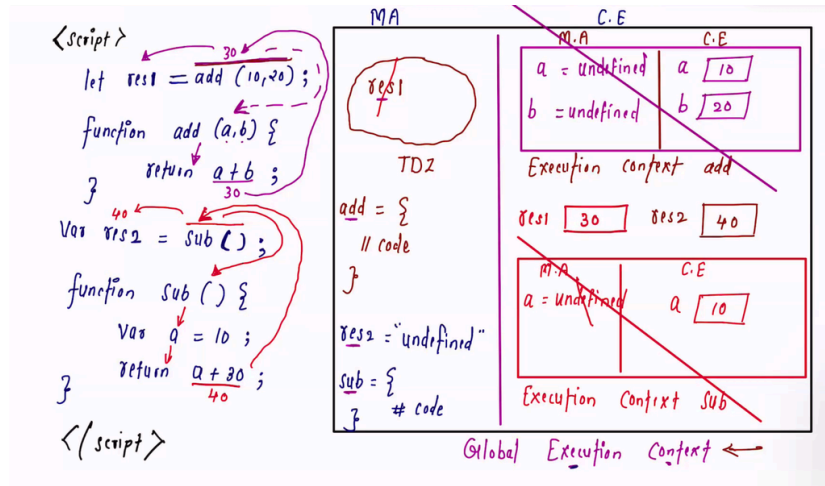 MA
C.E
<script>
30
let res1 = add (10,20) ;
function add (a,b) {
return a+b ;
30
}
40
Var res2 = sub () ;
function sub () {
Var a = 10 ;
return a + 30 ;
40
}
</script>
res1
TDZ
add = {
// code
}
res2 = "undefined"
sub = {
# code
}
M.A
C.E
a = undefined
a 10
b = undefined
b 20
Execution context add
res1 30
res2 40
M.A
C.E
a = undefined
a 10
Execution Context Sub
Global Execution Context